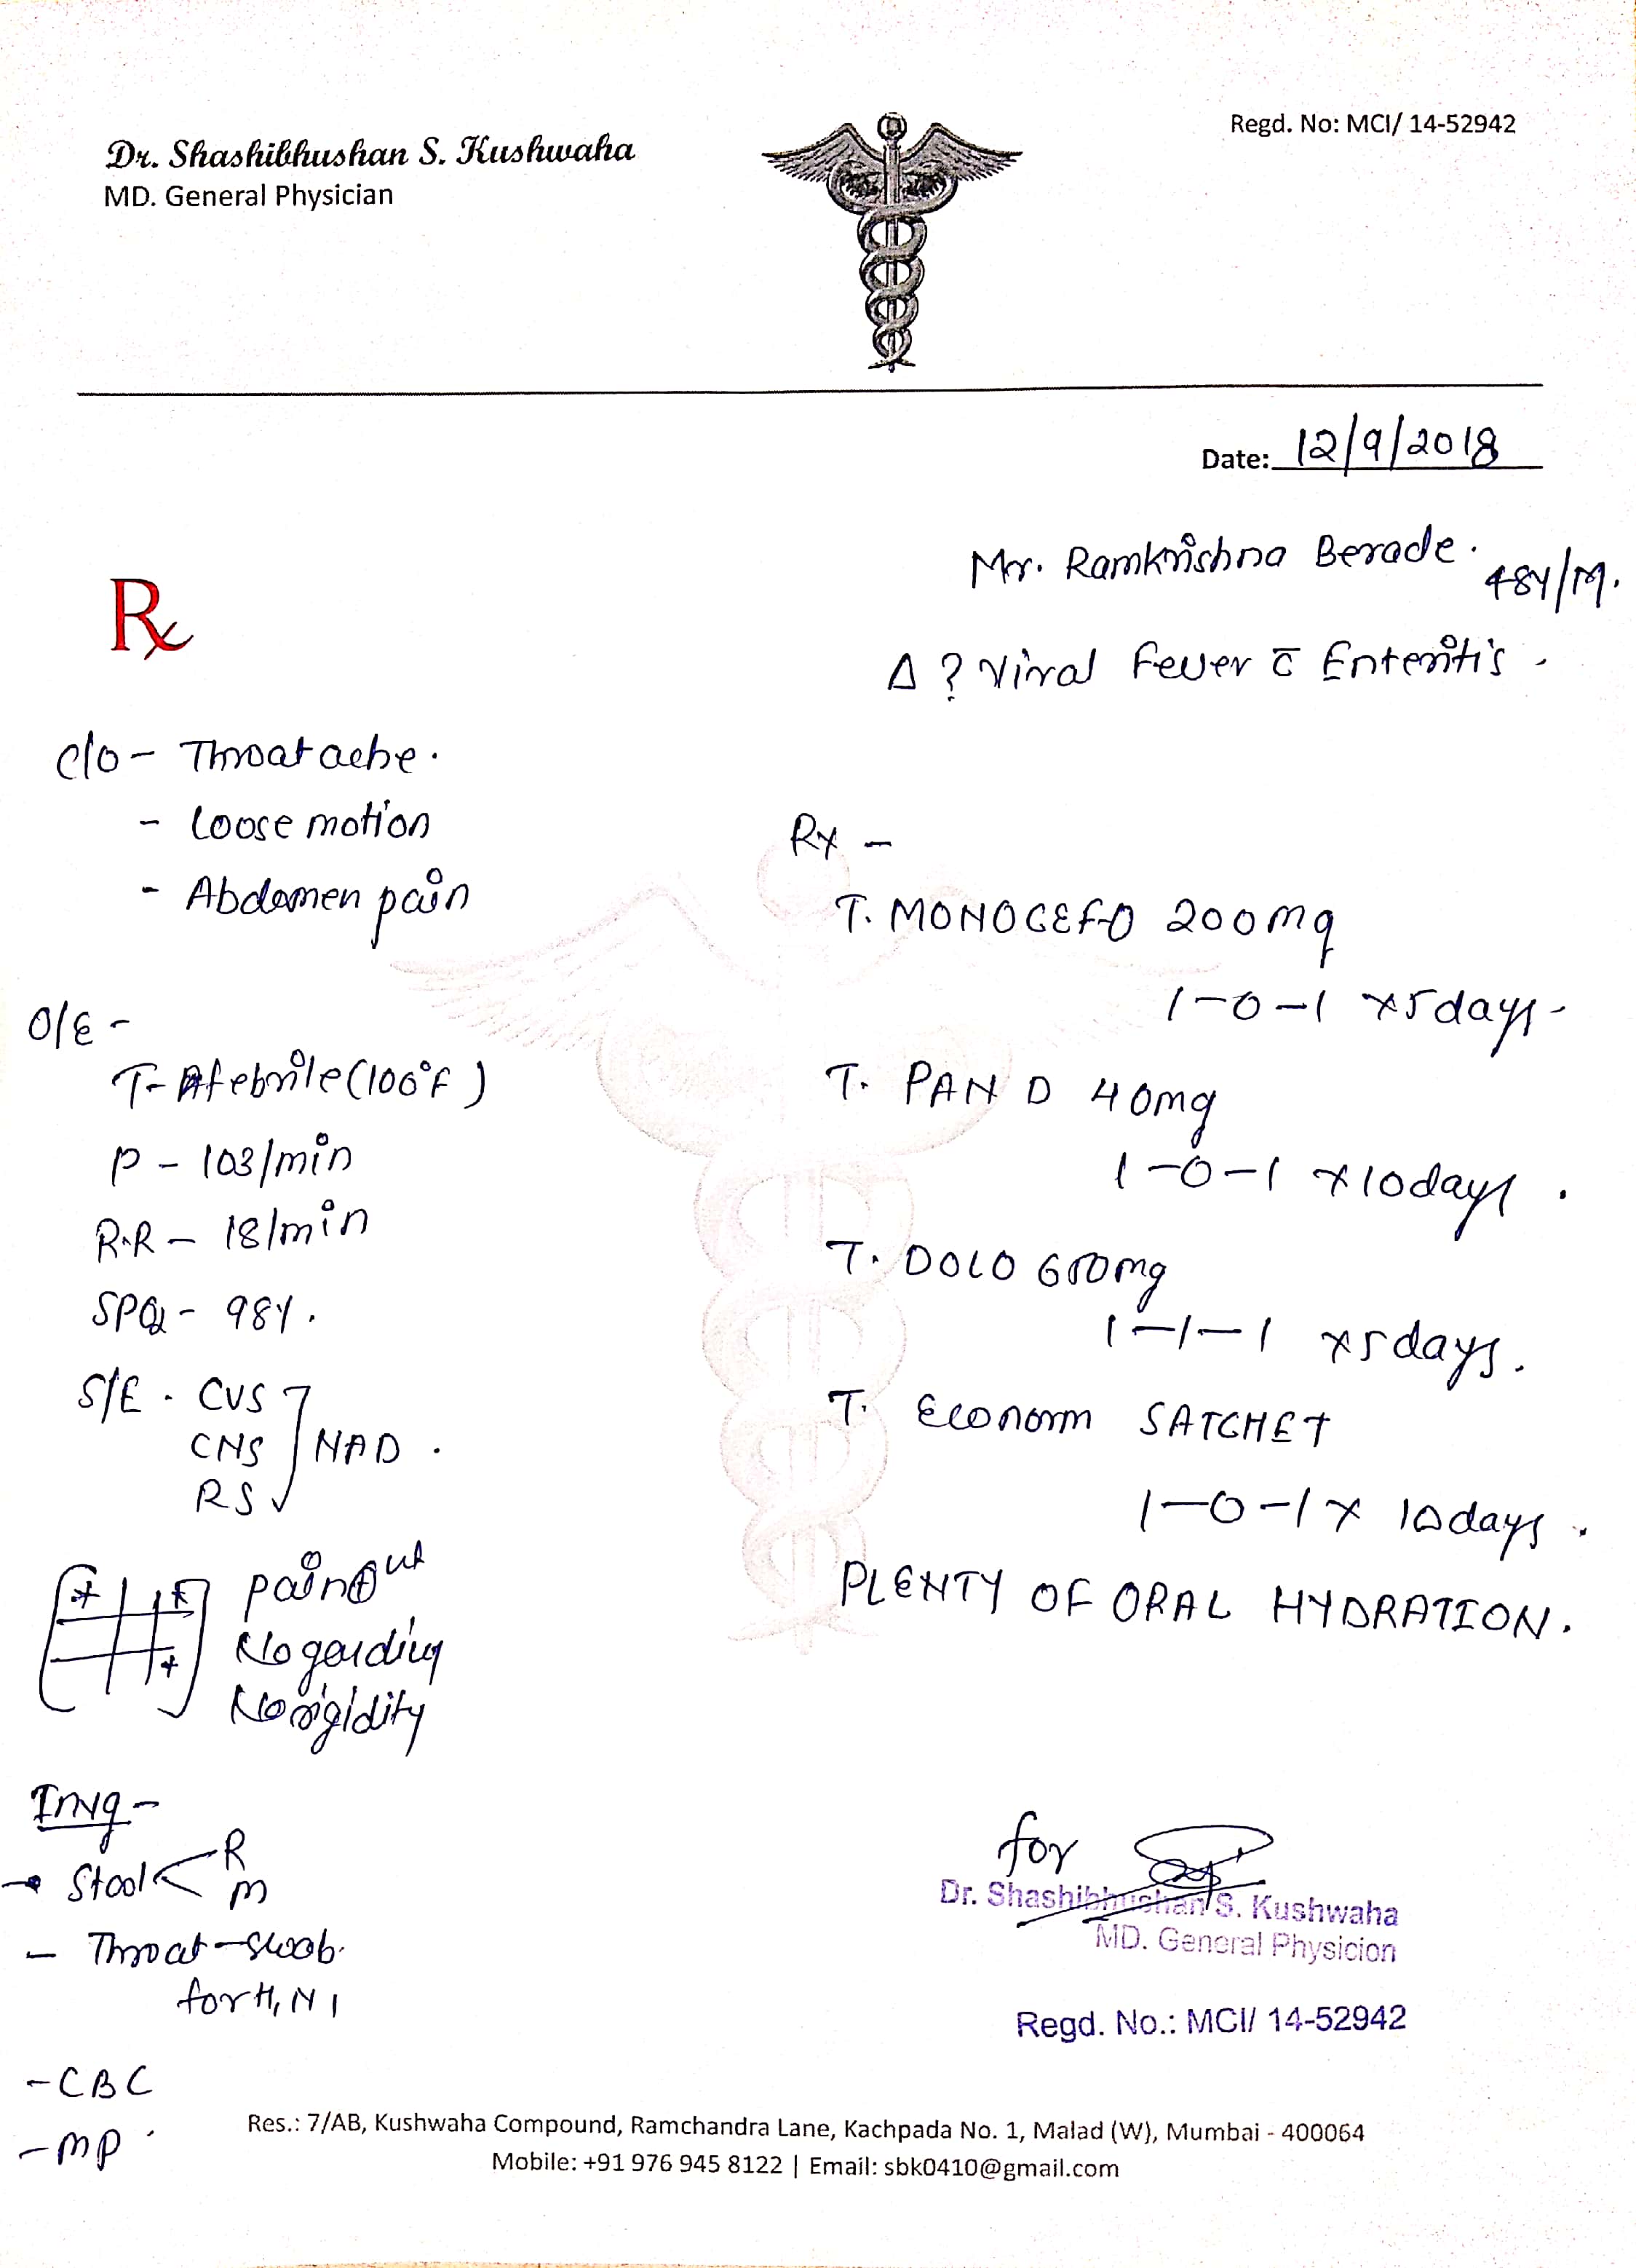 Dr. Shashibhushan S. Kushwaha
MD. General Physician
Regd. No: MCI/ 14-52942
Date: 12/9/2018
Rx
Mr. Ramkrishna Berade. 48y/M.
Δ ? Viral Fever c̄ Enteritis.
C/o - Throat ache.
- Loose motion
- Abdomen pain
O/E -
T- Afebrile (100°F)
P - 103/min
R.R - 18/min
SPO2 - 98%.
S/E . CVS
CNS ] NAD .
RS
+ +
+
Pain ⊕
No garding
No rigidity
Invg -
→ Stool < R
M
- Throat - swob.
for H1N1
- CBC
- MP .
Rx -
T. MONOCEF-O 200mg
1-0-1 x5days-
T. PAN D 40mg
1-0-1 x10days .
T. DOLO 650mg
1-1-1 x5days.
T. Econorm SATCHET
1-0-1 x 10days .
PLENTY OF ORAL HYDRATION.
for
Dr. Shashibhushan S. Kushwaha
MD. General Physicion
Regd. No.: MCI/ 14-52942
Res.: 7/AB, Kushwaha Compound, Ramchandra Lane, Kachpada No. 1, Malad (W), Mumbai - 400064
Mobile: +91 976 945 8122 | Email: sbk0410@gmail.com